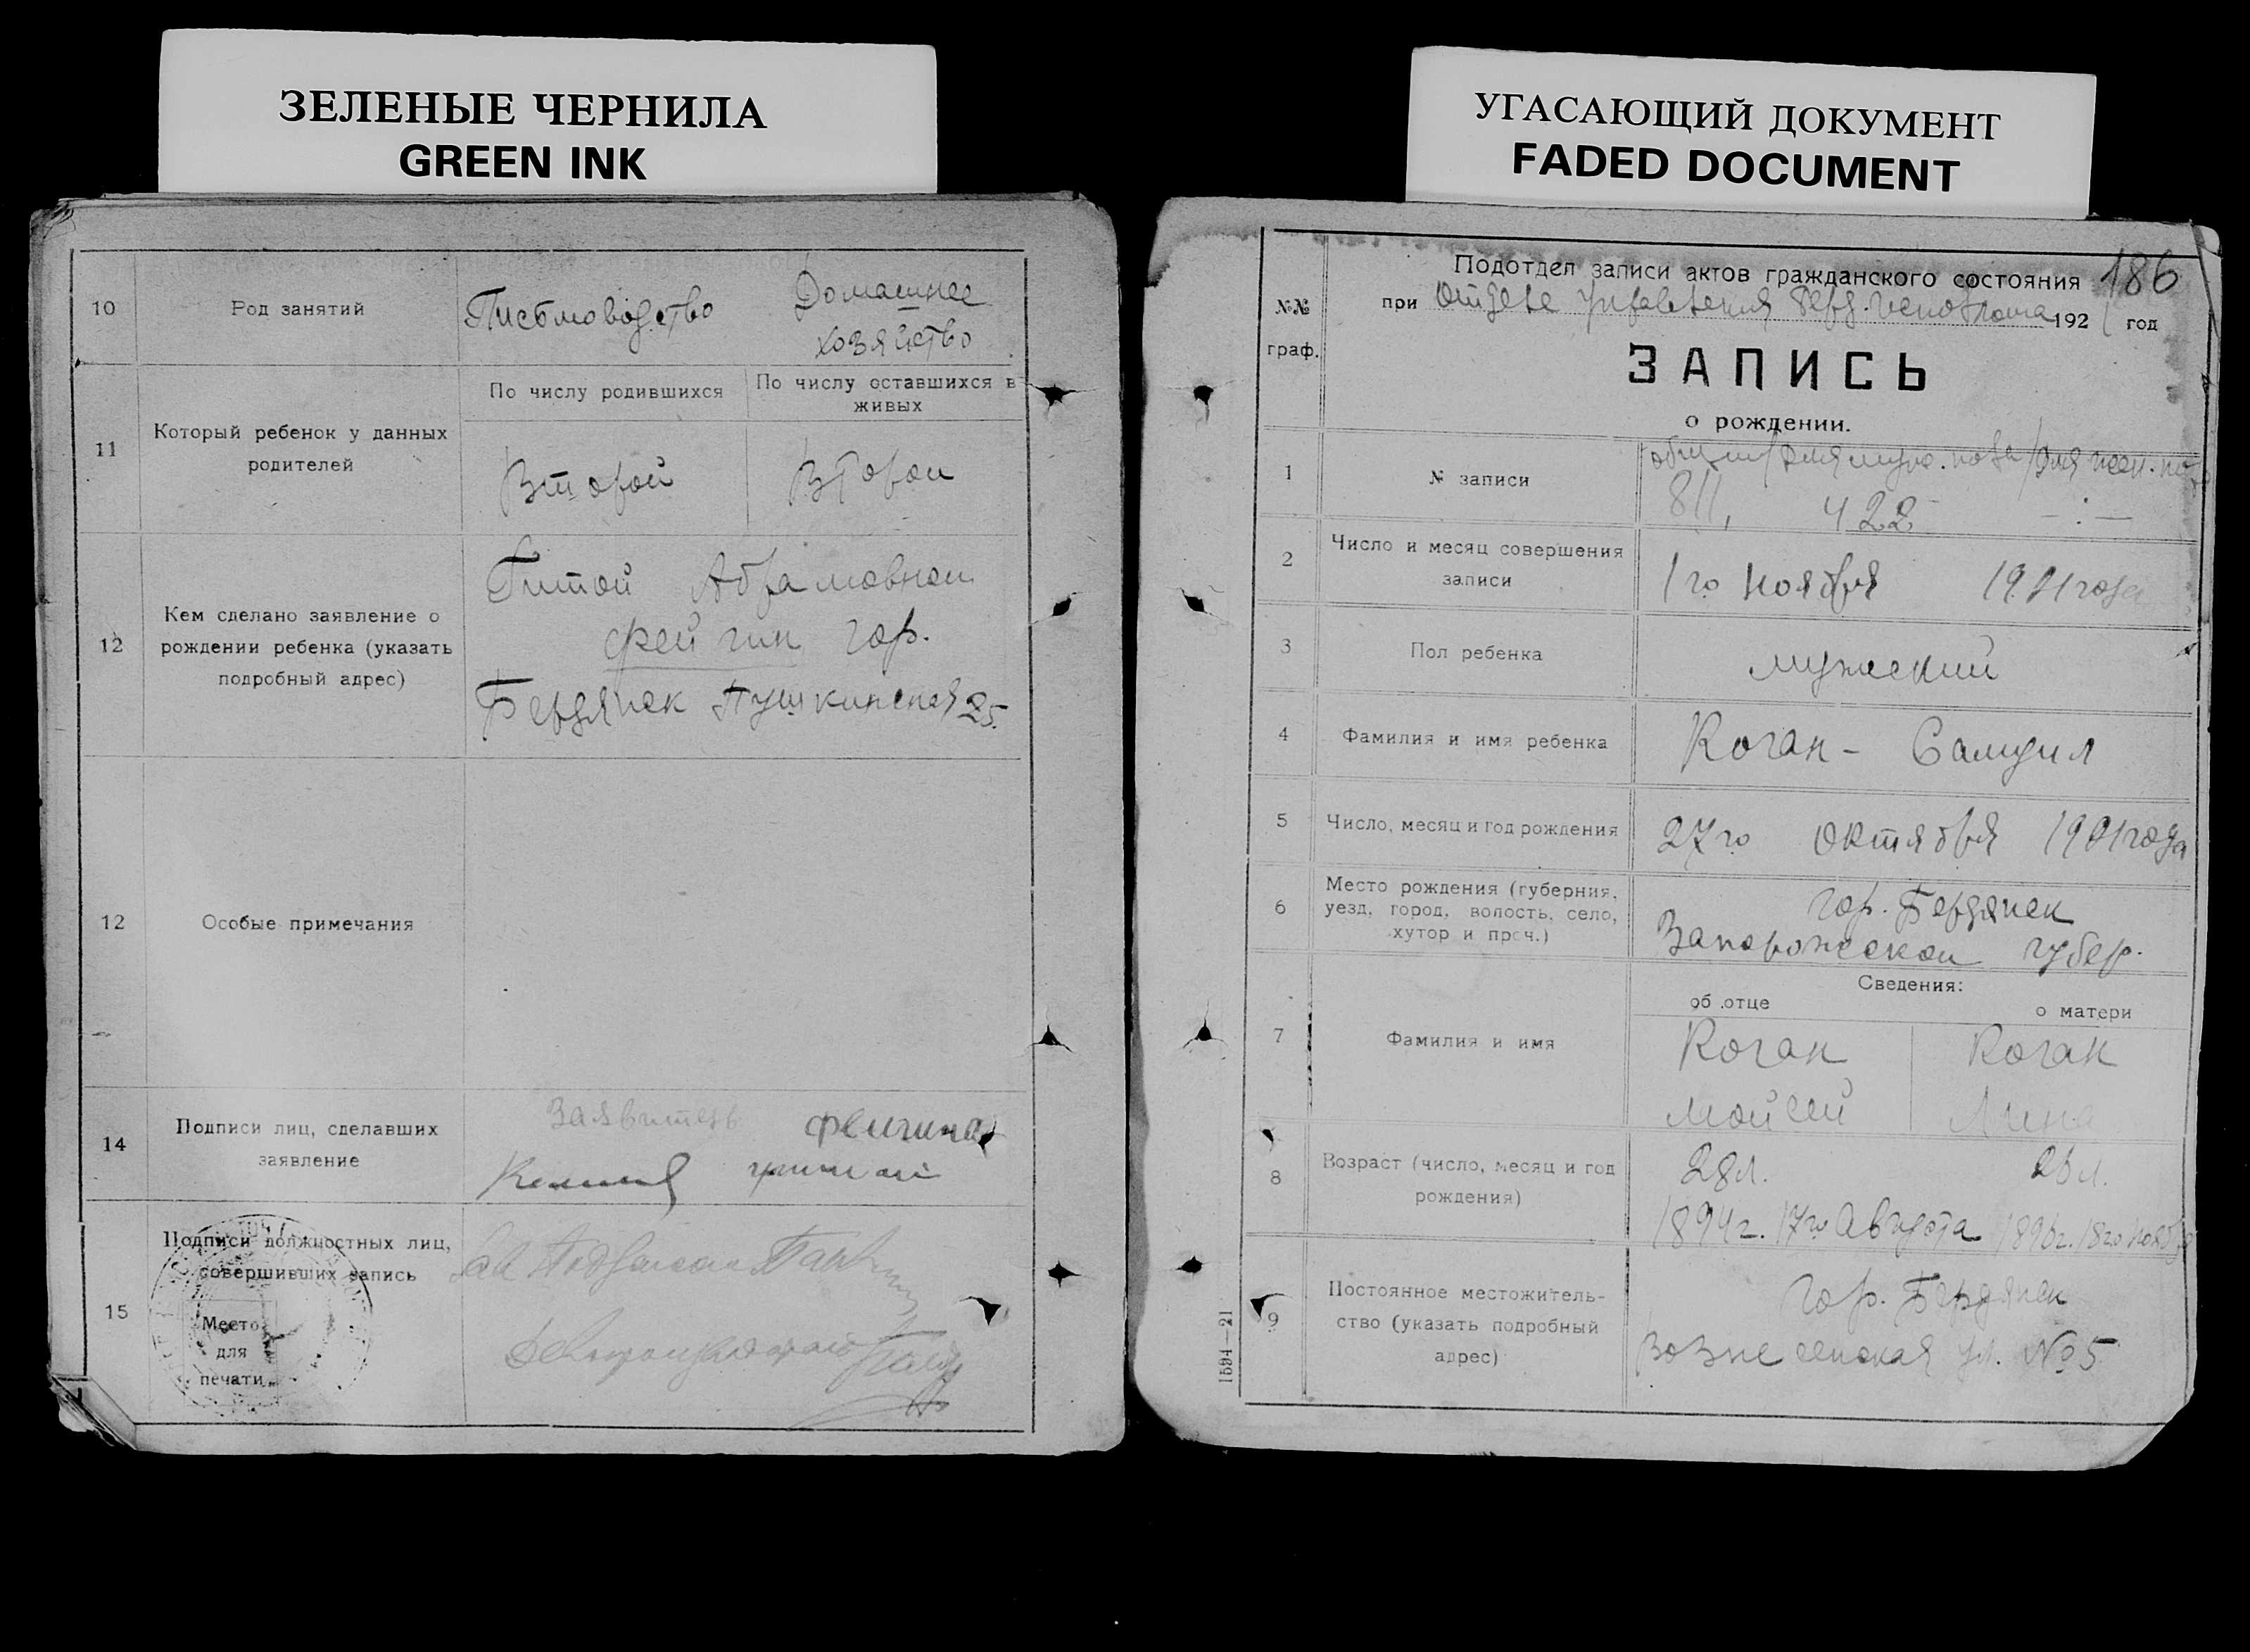 ЗЕЛЕНЫЕ ЧЕРНИЛА
GREEN INK
10
Род занятий
Письмоводство
Домашнее
хозяйство
11
Который ребенок у данных
родителей
По числу родившихся
По числу оставшихся в
живых
Второй
Второй
12
Кем сделано заявление о
рождении ребенка (указать
подробный адрес)
Гитой Абрамовной
Фейгин гор.
Бердянск Пушкинская 25.
12
Особые примечания
14
Подписи лиц, сделавших
заявление
Заявитель Фейгина
15
Подписи должностных лиц,
совершивших запись
Место
для
печати
УГАСАЮЩИЙ ДОКУМЕНТ
FADED DOCUMENT
186
№№
граф.
Подотдел записи актов гражданского состояния
при Отделе Управления Берд. Исполкома 1921 год
ЗАПИСЬ
о рождении.
1
№ записи
общий/для муж. пола/для жен. пол
811, 422 -:-
2
Число и месяц совершения
записи
1го Ноября 1921 года
3
Пол ребенка
мужеский
4
Фамилия и имя ребенка
Коган - Самуил
5
Число, месяц и год рождения
27го Октября 1921 года
6
Место рождения (губерния,
уезд, город, волость, село,
хутор и проч.)
гор. Бердянск
Запорожской губер.
Сведения:
об отце
о матери
7
Фамилия и имя
Коган
Мойсей
Коган
Лина
8
Возраст (число, месяц и год
рождения)
28л.
1894г. 17го Августа
26л.
1896г. 18го Нояб
9
Постоянное местожитель-
ство (указать подробный
адрес)
гор. Бердянск
Вознесенская ул. №5
1594—21